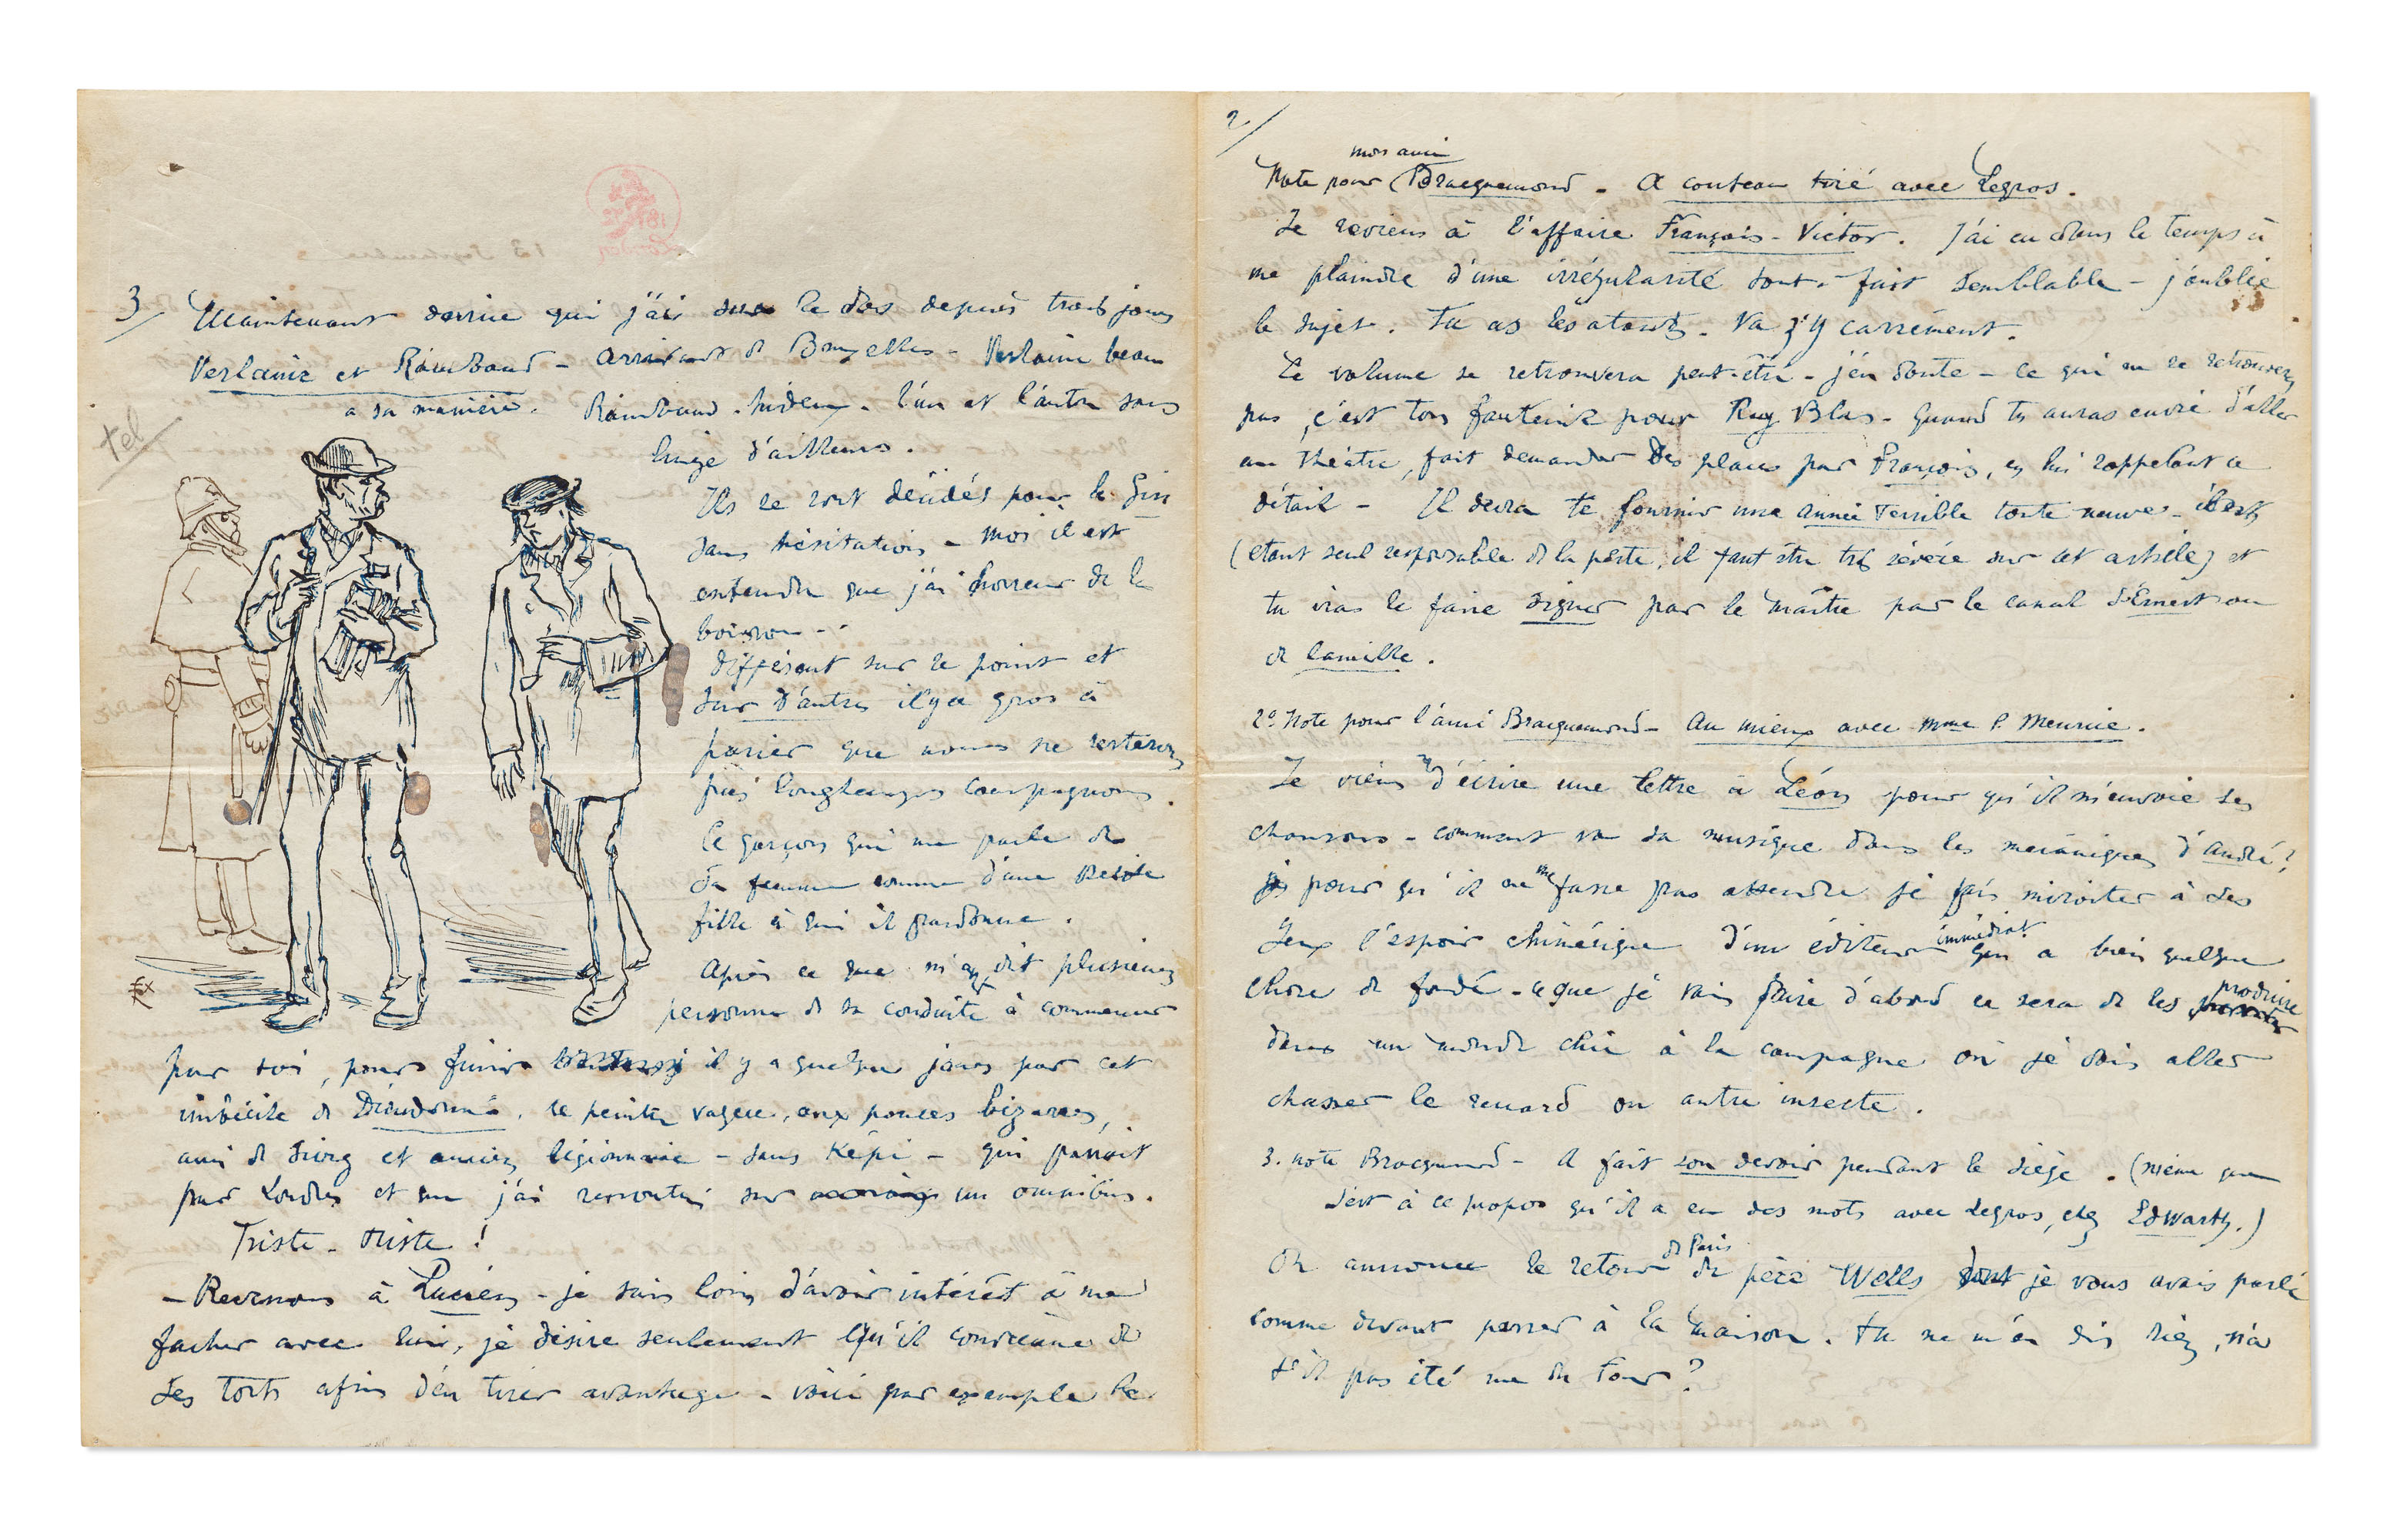 3/ Maintenant devine qui j'ai sur le dos depuis trois jours
Verlaine et Rimbaud - arrivant de Bruxelles - Verlaine beau
à sa manière. Rimbaud - hideux. l'un et l'autre sans
linge d'ailleurs.
tel
Ils se sont décidés pour le Gin
sans hésitation - moi il est
entendu que j'ai horreur de la
boisson - -
différent sur ce point et
sur d'autres il y a gros à
parier que nous ne resterons
pas longtemps compagnons.
Ce garçon qui me parle de
sa femme comme d'une petite
fille à qui il pardonne.
Après ce que m'ont dit plusieurs
personnes de sa conduite à commencer
par toi, pour finir il y a quelques jours par cet
imbécile de Dieudonné, le peintre vaseux, aux pouces bizarres,
ami de et ancien légionnaire - sans Képi - qui passait
par Londres et que j'ai rencontré sur un omnibus.
Triste - triste !
- Revenons à Lucien - je suis loin d'avoir intérêt à me
facher avec lui, je désire seulement qu'il convienne de
ses torts afin d'en tirer avantage - voici par exemple le
FRx
2/
mon ami
Note pour Bracquemond - A couteau tiré avec Legros.
Je reviens à l'affaire François-Victor. J'ai eu dans le temps à
me plaindre d'une irrégularité tout-à-fait semblable - j'oublie
le sujet. Tu as les atouts. Va z'y carrément.
Le volume se retrouvera peut-être - j'en doute - ce qui ne se retrouvera
pas, c'est ton fauteuil pour Ruy Blas - quand tu auras envie d'aller
au théâtre, fait demander des places par François, en lui rappelant ce
détail - Il devra te fournir une année terrible toute neuve -
(étant seul responsable de la perte, il faut être très sévère sur cet article) et
tu iras le faire signer par le maître par le canal d'Ernest ou
de Camille.
2°. Note pour l'ami Bracquemond - au mieux avec Mme P. Meurice.
Je viens d'écrire une lettre à Léon pour qu'il m'envoie ses
chansons - comment va sa musique dans les mécaniques d'André?
pour qu'il ne me fasse pas attendre je fais miroiter à ses
yeux l'espoir chimérique d'un éditeur immédiat qui a bien quelque
chose de fondé - ce que je vais faire d'abord ce sera de les produire
dans un monde chic à la campagne où je dois aller
chasser le renard ou autre insecte.
3. note Bracquemond - A fait son devoir pendant le siège. (même que
c'est à ce propos qu'il a eu des mots avec Legros, chez Edwards.)
On annonce le retour de Paris du père Wells dont je vous avais parlé
comme devant passer à la maison. Tu ne m'en dis rien, n'a
t'il pas été me du tour?